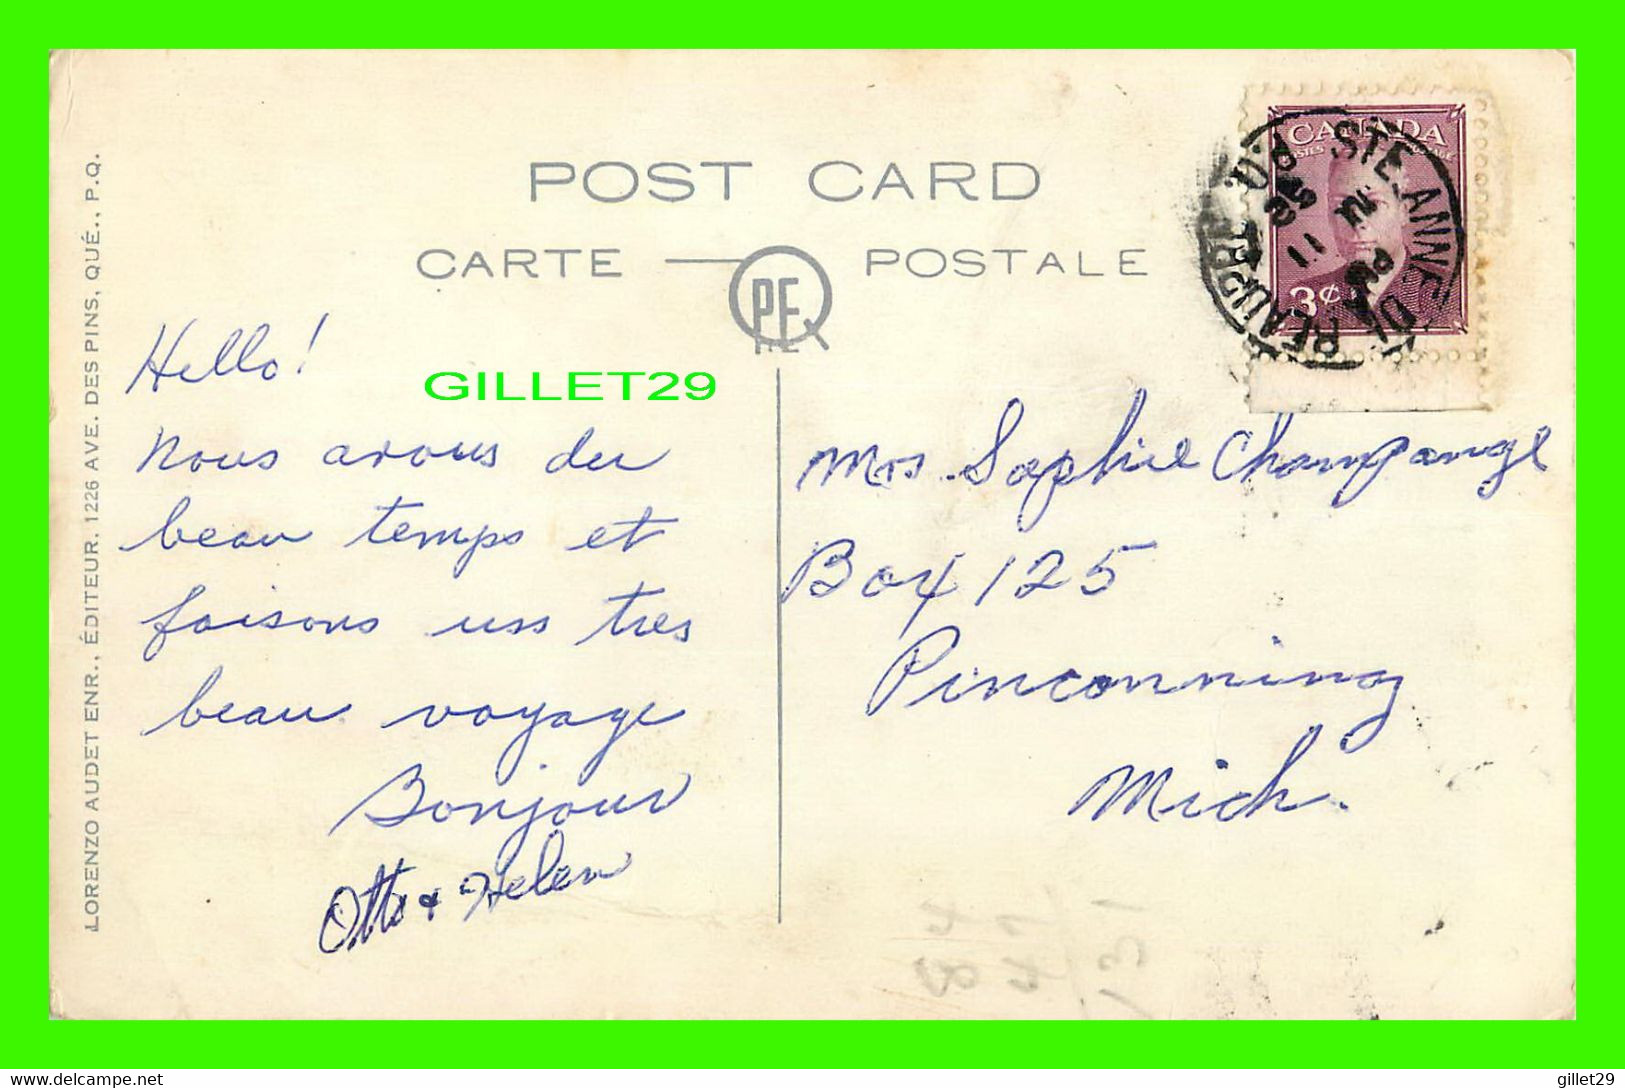 POST CARD
CARTE POSTALE
PE
Hello!
GILLET29
Nous avous du
beau temps et
faisons uss tres
beau voyage
Bonjour
Otto & Helen
CANADA
3¢
STE. ANNE DE BEAUPRE
P.Q.
Mrs Sophie Champange
Box 125
Pinconning
Mich.
LORENZO AUDET ENR., ÉDITEUR. 1226 AVE. DES PINS, QUÉ., P.Q.
delcampe.net
gillet29